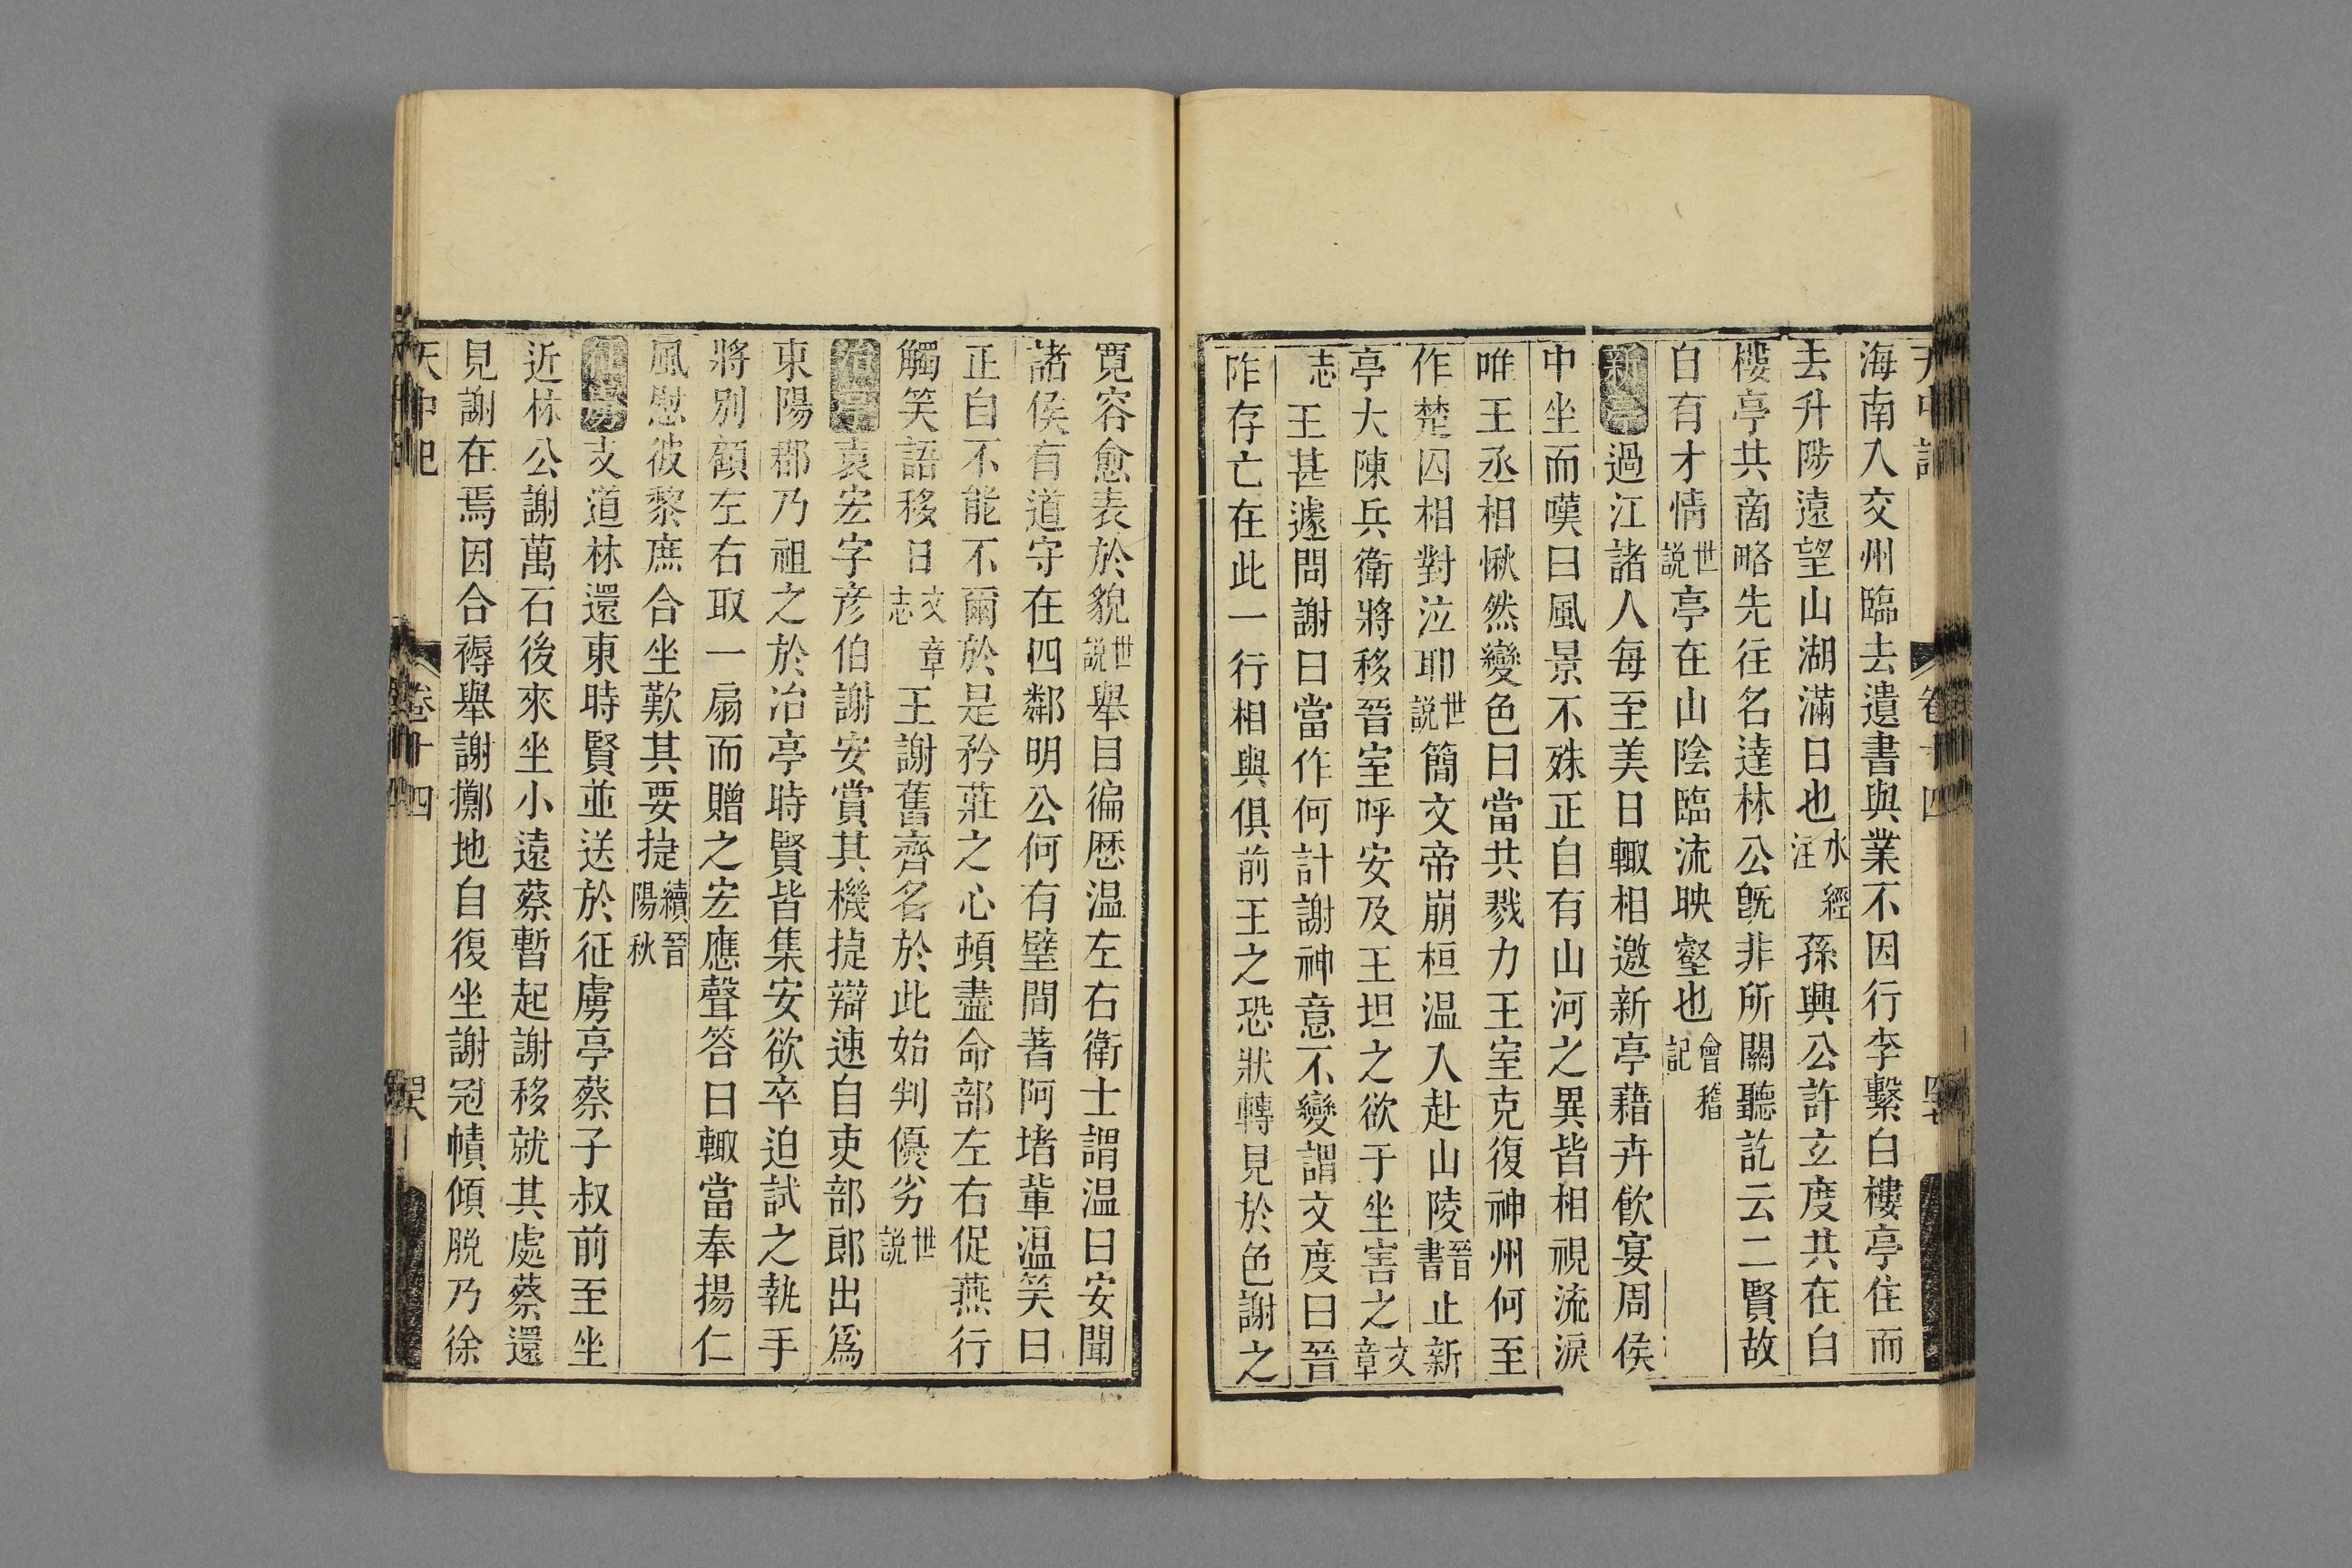 海南入交州臨去遺書與業不因行李繫白樓亭住而
去升陟遠望山湖滿目也水經注孫興公許玄度共在白
樓亭共商略先往名達林公旣非所關聽訖云二賢故
自有才情世説亭在山陰臨流映壑也會稽記
新亭過江諸人每至美日輙相邀新亭藉卉飮宴周侯
中坐而嘆曰風景不殊正自有山河之異皆相視流淚
唯王丞相愀然變色曰當共戮力王室克復神州何至
作楚囚相對泣耶世説簡文帝崩桓温入赴山陵晉書止新
亭大陳兵衛將移晉室呼安及王坦之欲于坐害之文章
志王甚遽問謝曰當作何計謝神意不變謂文度曰晉
阼存亡在此一行相與俱前王之恐狀轉見於色謝之
寛容愈表於貌世説舉目徧歷温左右衛士謂温曰安聞
諸侯有道守在四鄰明公何有壁間著阿堵輩温笑曰
正自不能不爾於是矜莊之心頓盡命部左右促燕行
觴笑語移日文章志王謝舊齊名於此始判優劣世説
冶亭袁宏字彥伯謝安賞其機捷辯速自吏部郎出爲
東陽郡乃祖之於冶亭時賢皆集安欲卒迫試之執手
將別顧左右取一扇而贈之宏應聲答曰輙當奉揚仁
風慰彼黎庶合坐歎其要捷續晉陽秋
支道林還東時賢並送於征虜亭蔡子叔前至坐
近林公謝萬石後來坐小遠蔡暫起謝移就其處蔡還
見謝在焉因合褥舉謝擲地自復坐謝冠幘傾脱乃徐
天中記 卷十四